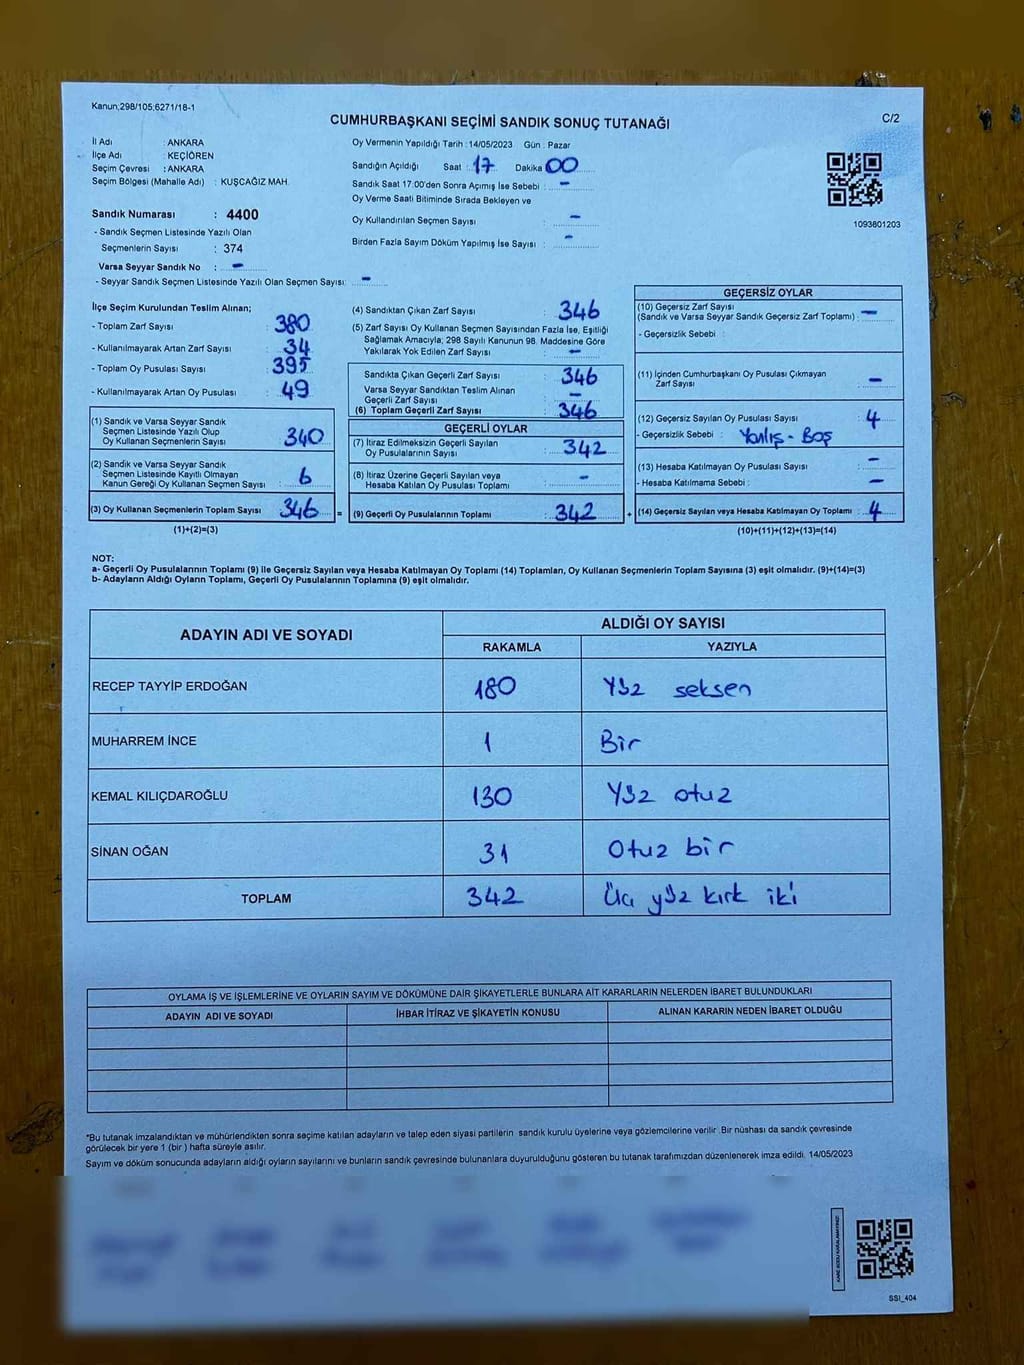 Kanun;298/105;6271/18-1
C/2
CUMHURBAŞKANI SEÇİMİ SANDIK SONUÇ TUTANAĞI
İl Adı : ANKARA
İlçe Adı : KEÇİÖREN
Seçim Çevresi : ANKARA
Seçim Bölgesi (Mahalle Adı) : KUŞCAĞIZ MAH.
Sandık Numarası : 4400
- Sandık Seçmen Listesinde Yazılı Olan
Seçmenlerin Sayısı : 374
Varsa Seyyar Sandık No : -
- Seyyar Sandık Seçmen Listesinde Yazılı Olan Seçmen Sayısı: -
Oy Vermenin Yapıldığı Tarih : 14/05/2023 Gün : Pazar
Sandığın Açıldığı Saat : 17 Dakika 00
Sandık Saat 17:00'den Sonra Açımış İse Sebebi : -
Oy Verme Saati Bitiminde Sırada Bekleyen ve
Oy Kullandırılan Seçmen Sayısı : -
Birden Fazla Sayım Döküm Yapılmış İse Sayısı : -
1093801203
İlçe Seçim Kurulundan Teslim Alınan;
- Toplam Zarf Sayısı : 380
- Kullanılmayarak Artan Zarf Sayısı : 34
- Toplam Oy Pusulası Sayısı : 395
- Kullanılmayarak Artan Oy Pusulası : 49
(1) Sandık ve Varsa Seyyar Sandık
Seçmen Listesinde Yazılı Olup
Oy Kullanan Seçmenlerin Sayısı : 340
(2) Sandık ve Varsa Seyyar Sandık
Seçmen Listesinde Kayıtlı Olmayan
Kanun Gereği Oy Kullanan Seçmen Sayısı : 6
(3) Oy Kullanan Seçmenlerin Toplam Sayısı : 346 =
(1)+(2)=(3)
(4) Sandıktan Çıkan Zarf Sayısı : 346
(5) Zarf Sayısı Oy Kullanan Seçmen Sayısından Fazla İse, Eşitliği
Sağlamak Amacıyla; 298 Sayılı Kanunun 98. Maddesine Göre
Yakılarak Yok Edilen Zarf Sayısı : -
Sandıkta Çıkan Geçerli Zarf Sayısı : 346
Varsa Seyyar Sandıktan Teslim Alınan
Geçerli Zarf Sayısı : -
(6) Toplam Geçerli Zarf Sayısı : 346
GEÇERLİ OYLAR
(7) İtiraz Edilmeksizin Geçerli Sayılan
Oy Pusulalarının Sayısı : 342
(8) İtiraz Üzerine Geçerli Sayılan veya
Hesaba Katılan Oy Pusulası Toplamı : -
(9) Geçerli Oy Pusulalarının Toplamı : 342 +
GEÇERSİZ OYLAR
(10) Geçersiz Zarf Sayısı
(Sandık ve Varsa Seyyar Sandık Geçersiz Zarf Toplamı) : -
- Geçersizlik Sebebi :
(11) İçinden Cumhurbaşkanı Oy Pusulası Çıkmayan
Zarf Sayısı : -
(12) Geçersiz Sayılan Oy Pusulası Sayısı : 4
- Geçersizlik Sebebi : Yanlış - Boş
(13) Hesaba Katılmayan Oy Pusulası Sayısı : -
- Hesaba Katılmama Sebebi : -
(14) Geçersiz Sayılan veya Hesaba Katılmayan Oy Toplamı : 4
(10)+(11)+(12)+(13)=(14)
NOT:
a- Geçerli Oy Pusulalarının Toplamı (9) ile Geçersiz Sayılan veya Hesaba Katılmayan Oy Toplamı (14) Toplamları, Oy Kullanan Seçmenlerin Toplam Sayısına (3) eşit olmalıdır. (9)+(14)=(3)
b- Adayların Aldığı Oyların Toplamı, Geçerli Oy Pusulalarının Toplamına (9) eşit olmalıdır.
ADAYIN ADI VE SOYADI
ALDIĞI OY SAYISI
RAKAMLA YAZIYLA
RECEP TAYYİP ERDOĞAN 180 Yüz seksen
MUHARREM İNCE 1 Bir
KEMAL KILIÇDAROĞLU 130 Yüz otuz
SİNAN OĞAN 31 Otuz bir
TOPLAM 342 Üç yüz kırk iki
OYLAMA İŞ VE İŞLEMLERİNE VE OYLARIN SAYIM VE DÖKÜMÜNE DAİR ŞİKAYETLERLE BUNLARA AİT KARARLARIN NELERDEN İBARET BULUNDUKLARI
ADAYIN ADI VE SOYADI İHBAR İTİRAZ VE ŞİKAYETİN KONUSU ALINAN KARARIN NEDEN İBARET OLDUĞU
*Bu tutanak imzalandıktan ve mühürlendikten sonra seçime katılan adayların ve talep eden siyasi partilerin sandık kurulu üyelerine veya gözlemcilerine verilir .Bir nüshası da sandık çevresinde
görülecek bir yere 1 (bir ) hafta süreyle asılır.
Sayım ve döküm sonucunda adayların aldığı oyların sayılarını ve bunların sandık çevresinde bulunanlara duyurulduğunu gösteren bu tutanak tarafımızdan düzenlenerek imza edildi. 14/05/2023
KARE KODU KARALAMAYINIZ!
SSI_404